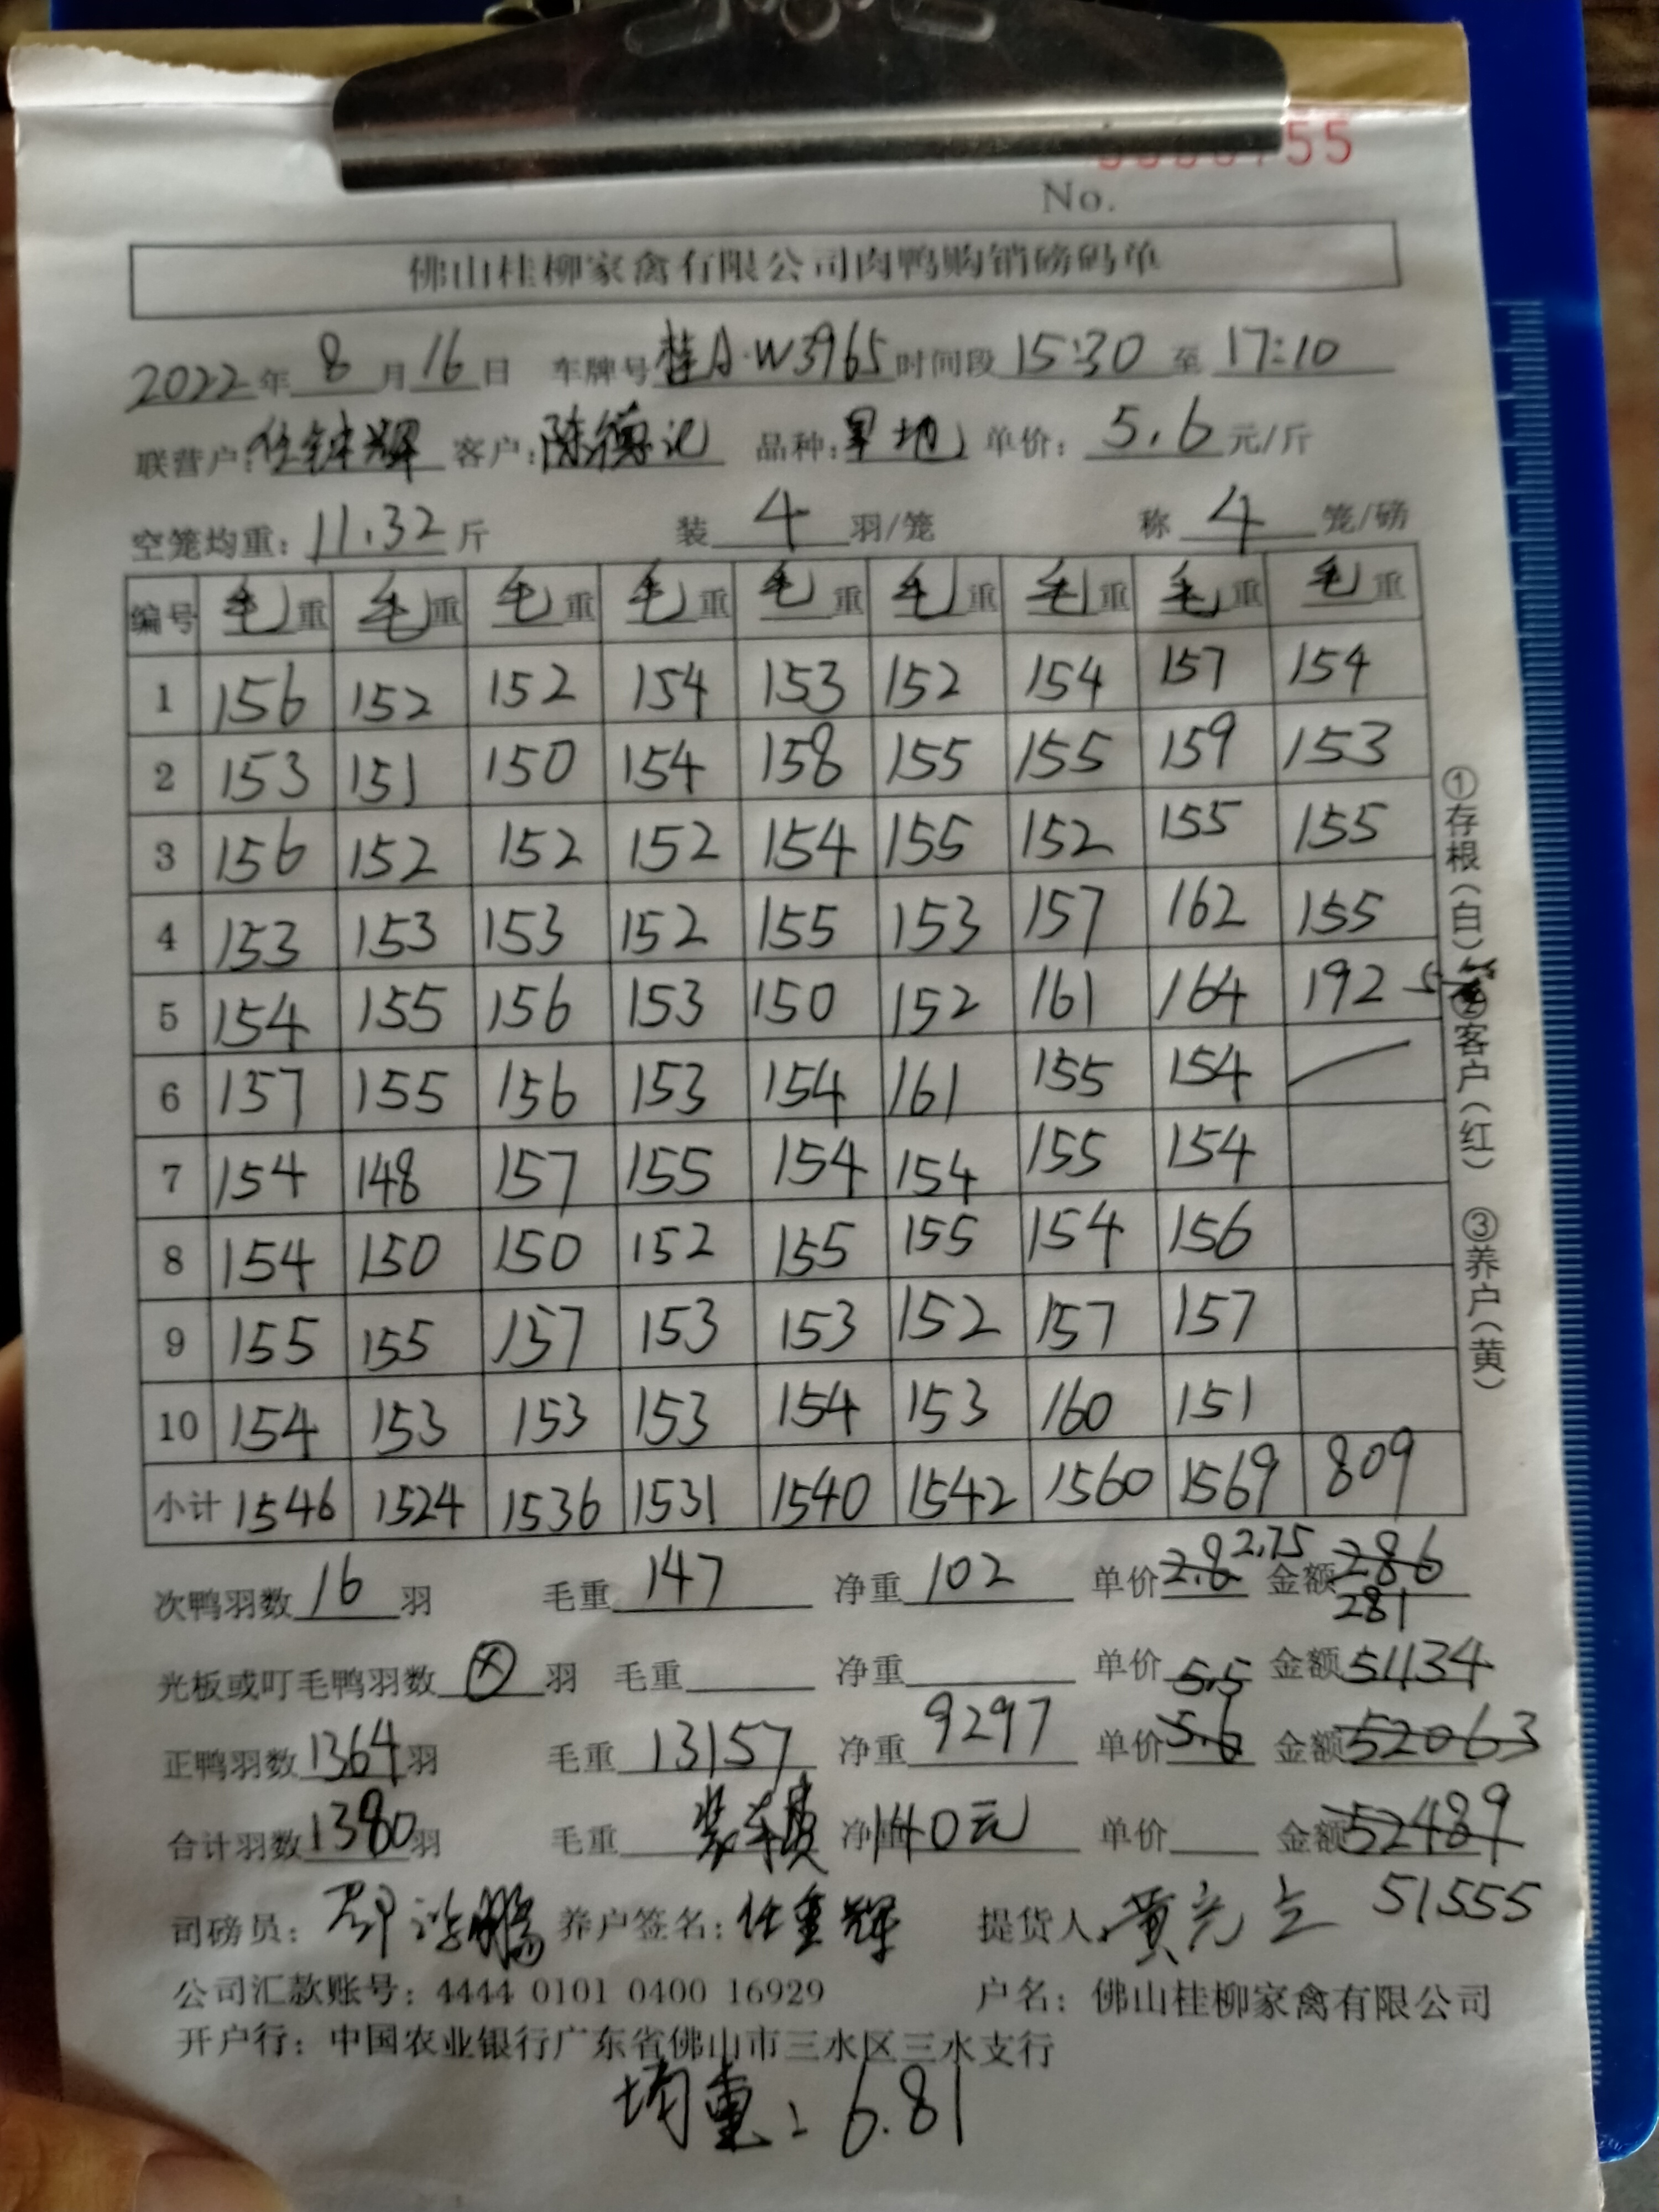 55
No.
佛山桂柳家禽有限公司肉鸭购销磅码单
2022年 8月16日 车牌号 桂A·W3965 时间段 15:30 至 17:10
联营户: 任钟辉 客户: 陈德记 品种: 旱地 单价: 5.6 元/斤
空笼均重: 11.32 斤 装 4 羽/笼 称 4 笼/磅
编号 毛重 毛重 毛重 毛重 毛重 毛重 毛重 毛重 毛重
1 156 152 152 154 153 152 154 157 154
2 153 151 150 154 158 155 155 159 153
3 156 152 152 152 154 155 152 155 155
4 153 153 153 152 155 153 157 162 155
5 154 155 156 153 150 152 161 164 192 5
6 157 155 156 153 154 161 155 154
7 154 148 157 155 154 154 155 154
8 154 150 150 152 155 155 154 156
9 155 155 157 153 153 152 157 157
10 154 153 153 153 154 153 160 151
小计 1546 1524 1536 1531 1540 1542 1560 1569 809
次鸭羽数 16 羽 毛重 147 净重 102 单价 2.8 2.75 金额 286
281
光板或叮毛鸭羽数 ⊗ 羽 毛重 净重 单价 5.5 金额 51134
正鸭羽数 1364 羽 毛重 13157 净重 9297 单价 5.6 金额 52063
合计羽数 1380 羽 毛重 装车费 净重 140元 单价 金额 52489
司磅员: 养户签名: 任重辉 提货人: 黄亮立 51555
公司汇款账号: 4444 0101 0400 16929 户名: 佛山桂柳家禽有限公司
开户行: 中国农业银行广东省佛山市三水区三水支行
均重: 6.81
①存根(白) ②客户(红) ③养户(黄)